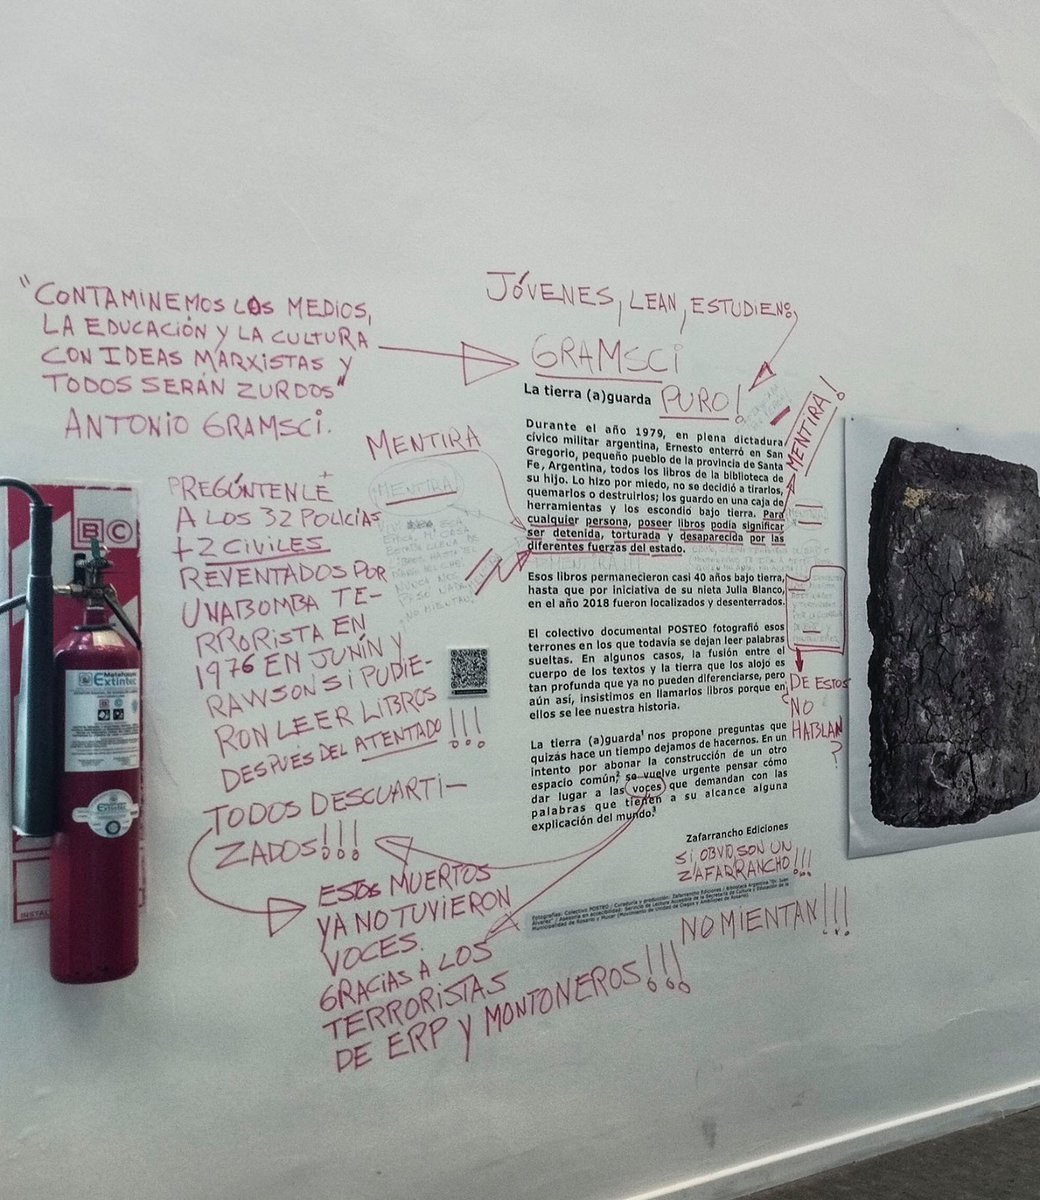 "CONTAMINEMOS LOS MEDIOS,
LA EDUCACIÓN Y LA CULTURA
CON IDEAS MARXISTAS Y
TODOS SERÁN ZURDOS"
ANTONIO GRAMSCI.
JÓVENES, LEAN, ESTUDIEN,
GRAMSCI
PURO!
MENTIRA
MENTIRA
MENTIRA!
PREGÚNTENLE
A LOS 32 POLICIAS
+2 CIVILES
REVENTADOS POR
UNA BOMBA TE-
RRORISTA EN
1976 EN JUNÍN Y
RAWSON SI PUDIE-
RON LEER LIBROS
DESPUÉS DEL ATENTADO!!!
TODOS DESCUARTI-
ZADOS!!!
ESTOS MUERTOS
YA NO TUVIERON
VOCES.
GRACIAS A LOS
TERRORISTAS
DE ERP Y MONTONEROS!!!
La tierra (a)guarda
Durante el año 1979, en plena dictadura
cívico militar argentina, Ernesto enterró en San
Gregorio, pequeño pueblo de la provincia de Santa
Fe, Argentina, todos los libros de la biblioteca de
su hijo. Lo hizo por miedo, no se decidió a tirarlos,
quemarlos o destruirlos; los guardo en una caja de
herramientas y los escondió bajo tierra. Para
cualquier persona, poseer libros podía significar
ser detenida, torturada y desaparecida por las
diferentes fuerzas del estado.
Esos libros permanecieron casi 40 años bajo tierra,
hasta que por iniciativa de su nieta Julia Blanco,
en el año 2018 fueron localizados y desenterrados.
El colectivo documental POSTEO fotografió esos
terrones en los que todavía se dejan leer palabras
sueltas. En algunos casos, la fusión entre el
cuerpo de los textos y la tierra que los alojo es
tan profunda que ya no pueden diferenciarse, pero
aún así, insistimos en llamarlos libros porque en
ellos se lee nuestra historia.
La tierra (a)guarda¹ nos propone preguntas que
quizás hace un tiempo dejamos de hacernos. En un
intento por abonar la construcción de un otro
espacio común,² se vuelve urgente pensar cómo
dar lugar a las voces que demandan con las
palabras que tienen a su alcance alguna
explicación del mundo.³
Zafarrancho Ediciones
DE ESTOS
NO
HABLAN
?
SI OBVIO, SON UN
ZAFARRANCHO!!!
NO MIENTAN!!!
Fotografías: Colectivo POSTEO / Curaduría y producción: Zafarrancho Ediciones / Biblioteca Argentina "Dr. Juan
Álvarez" / Asesoría en accesibilidad: Servicio de Lectura Accesible de la Secretaría de Cultura y Educación de la
Municipalidad de Rosario y Mucar (Movimiento de Unidad de Ciegos y Amblíopes de Rosario)
BC
Extintec